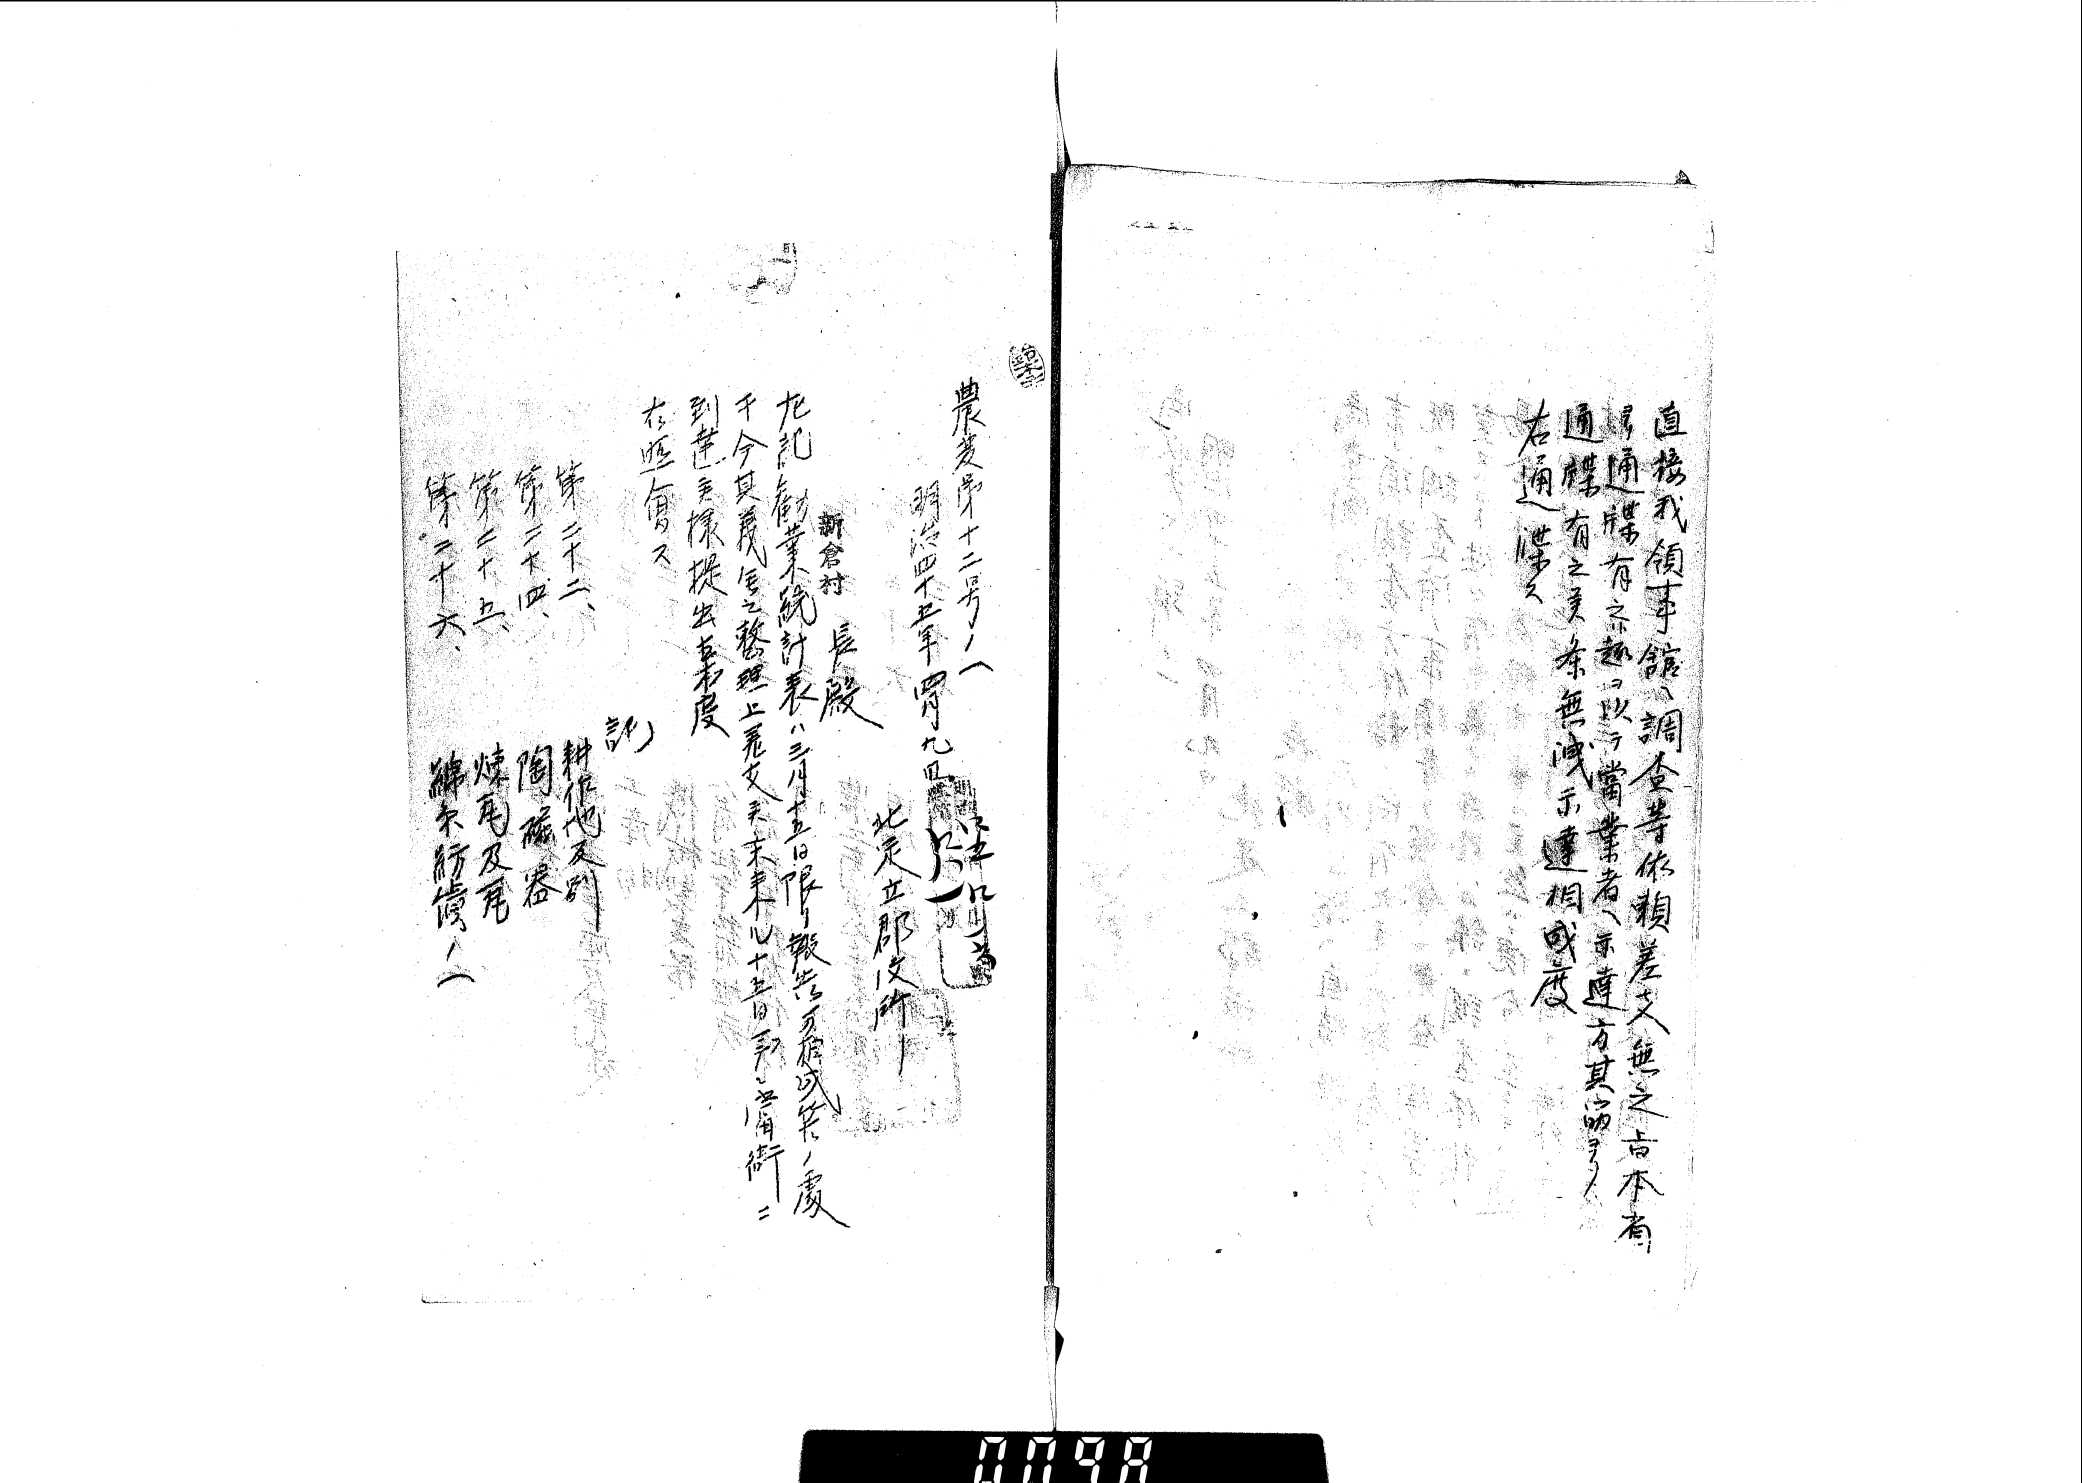 直接我領事館ヘ調査等依頼差支無之旨本省
ヨリ通牒有之趣ヲ以テ當業者ヘ示達方其筋ヨリ
通牒有之候条無洩示達相成度
右通牒ス
農発第十二号ノ一
明治四十五年四月九日
北足立郡役所
新倉村長殿
左記勧業統計表ハ三月十五日限リ報告可相成筈ノ處
于今其義無之整理上差支候条来ル十五日
到達候様提出相成度
右照會ス
記
第二十二、耕作地及別
第二十四、陶磁器
第二十五、煉瓦及瓦
第二十六、綿糸紡績ノ一
0098